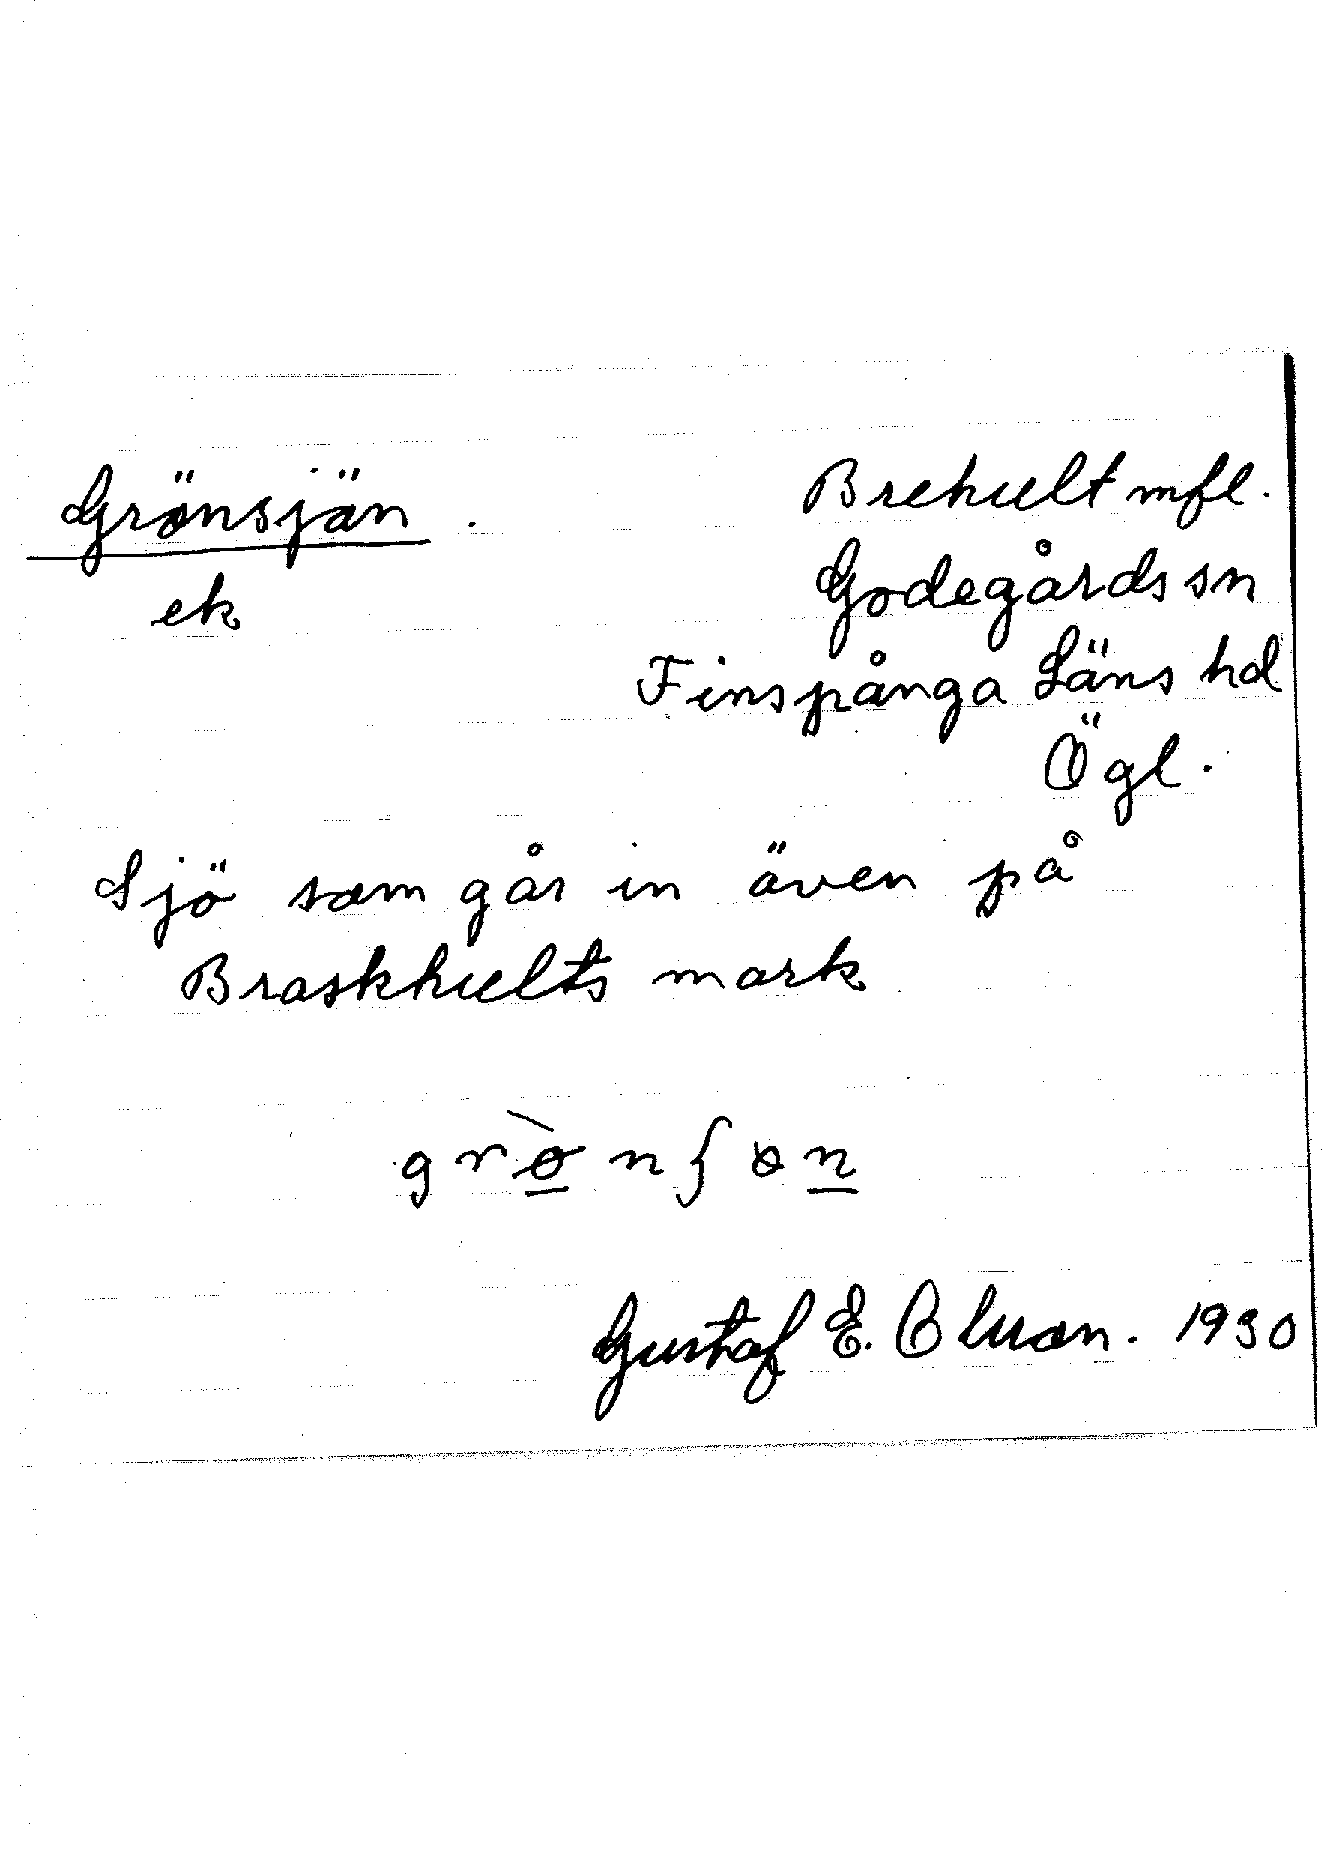 Grönsjön.
ek
Brehult mfl.
Godegårds sn
Finspånga Läns hd
Ögl.
Sjö som går in även på
Braskhults mark
Gustaf E. Olson. 1930